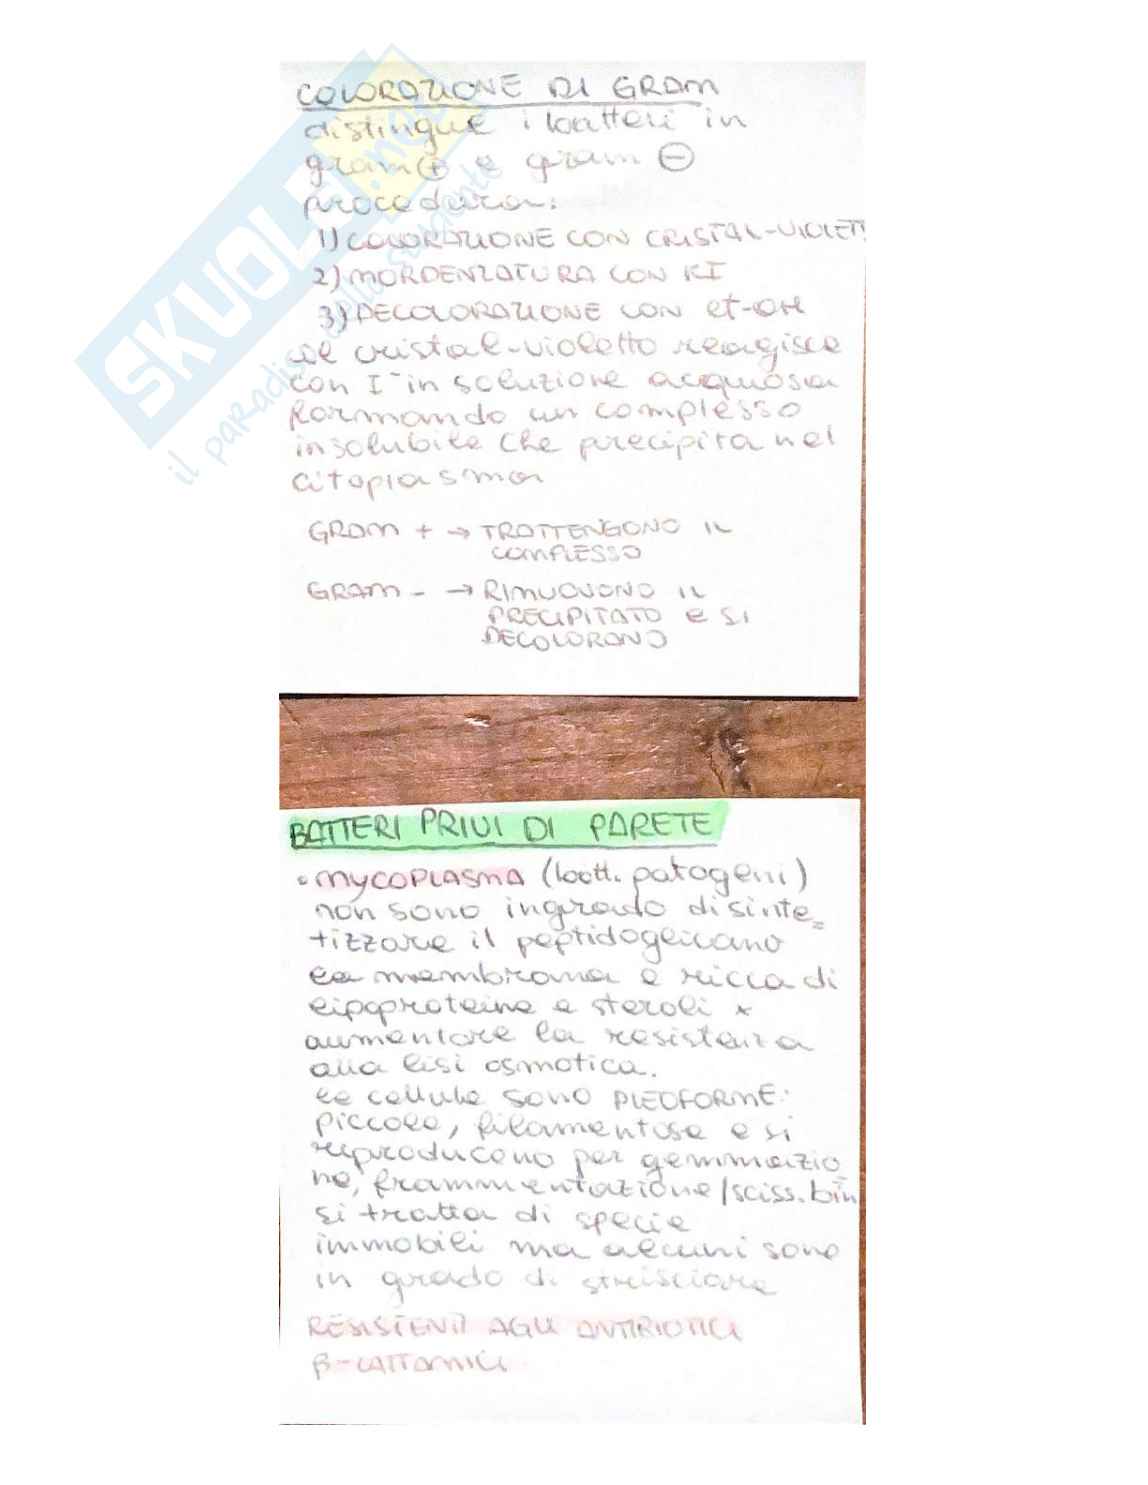 SKUOLA.net
il paradiso dello studente
COLORAZIONE DI GRAM
distingue i batteri in
gram ⊕ e gram ⊖
procedura:
1) COLORAZIONE CON CRISTAL-VIOLETT
2) MORDENZATURA CON KI
3) DECOLORAZIONE CON et-OH
il cristal-violetto reagisce
con I⁻ in soluzione acquosa
formando un complesso
insolubile che precipita nel
citoplasma
GRAM + → TRATTENGONO IL
COMPLESSO
GRAM - → RIMUOVONO IL
PRECIPITATO E SI
DECOLORANO
BATTERI PRIVI DI PARETE
• MYCOPLASMA (batt. patogeni)
non sono in grado di sinte=
tizzare il peptidoglicano
la membrana è ricca di
lipoproteine e steroli x
aumentare la resistenza
alla lisi osmotica.
le cellule sono PLEOFORME:
piccole, filamentose e si
riproducono per gemmazio=
ne, frammentazione/sciss. bin
si tratta di specie
immobili ma alcuni sono
in grado di strisciare
RESISTENTI AGLI ANTIBIOTICI
β-LATTAMICI